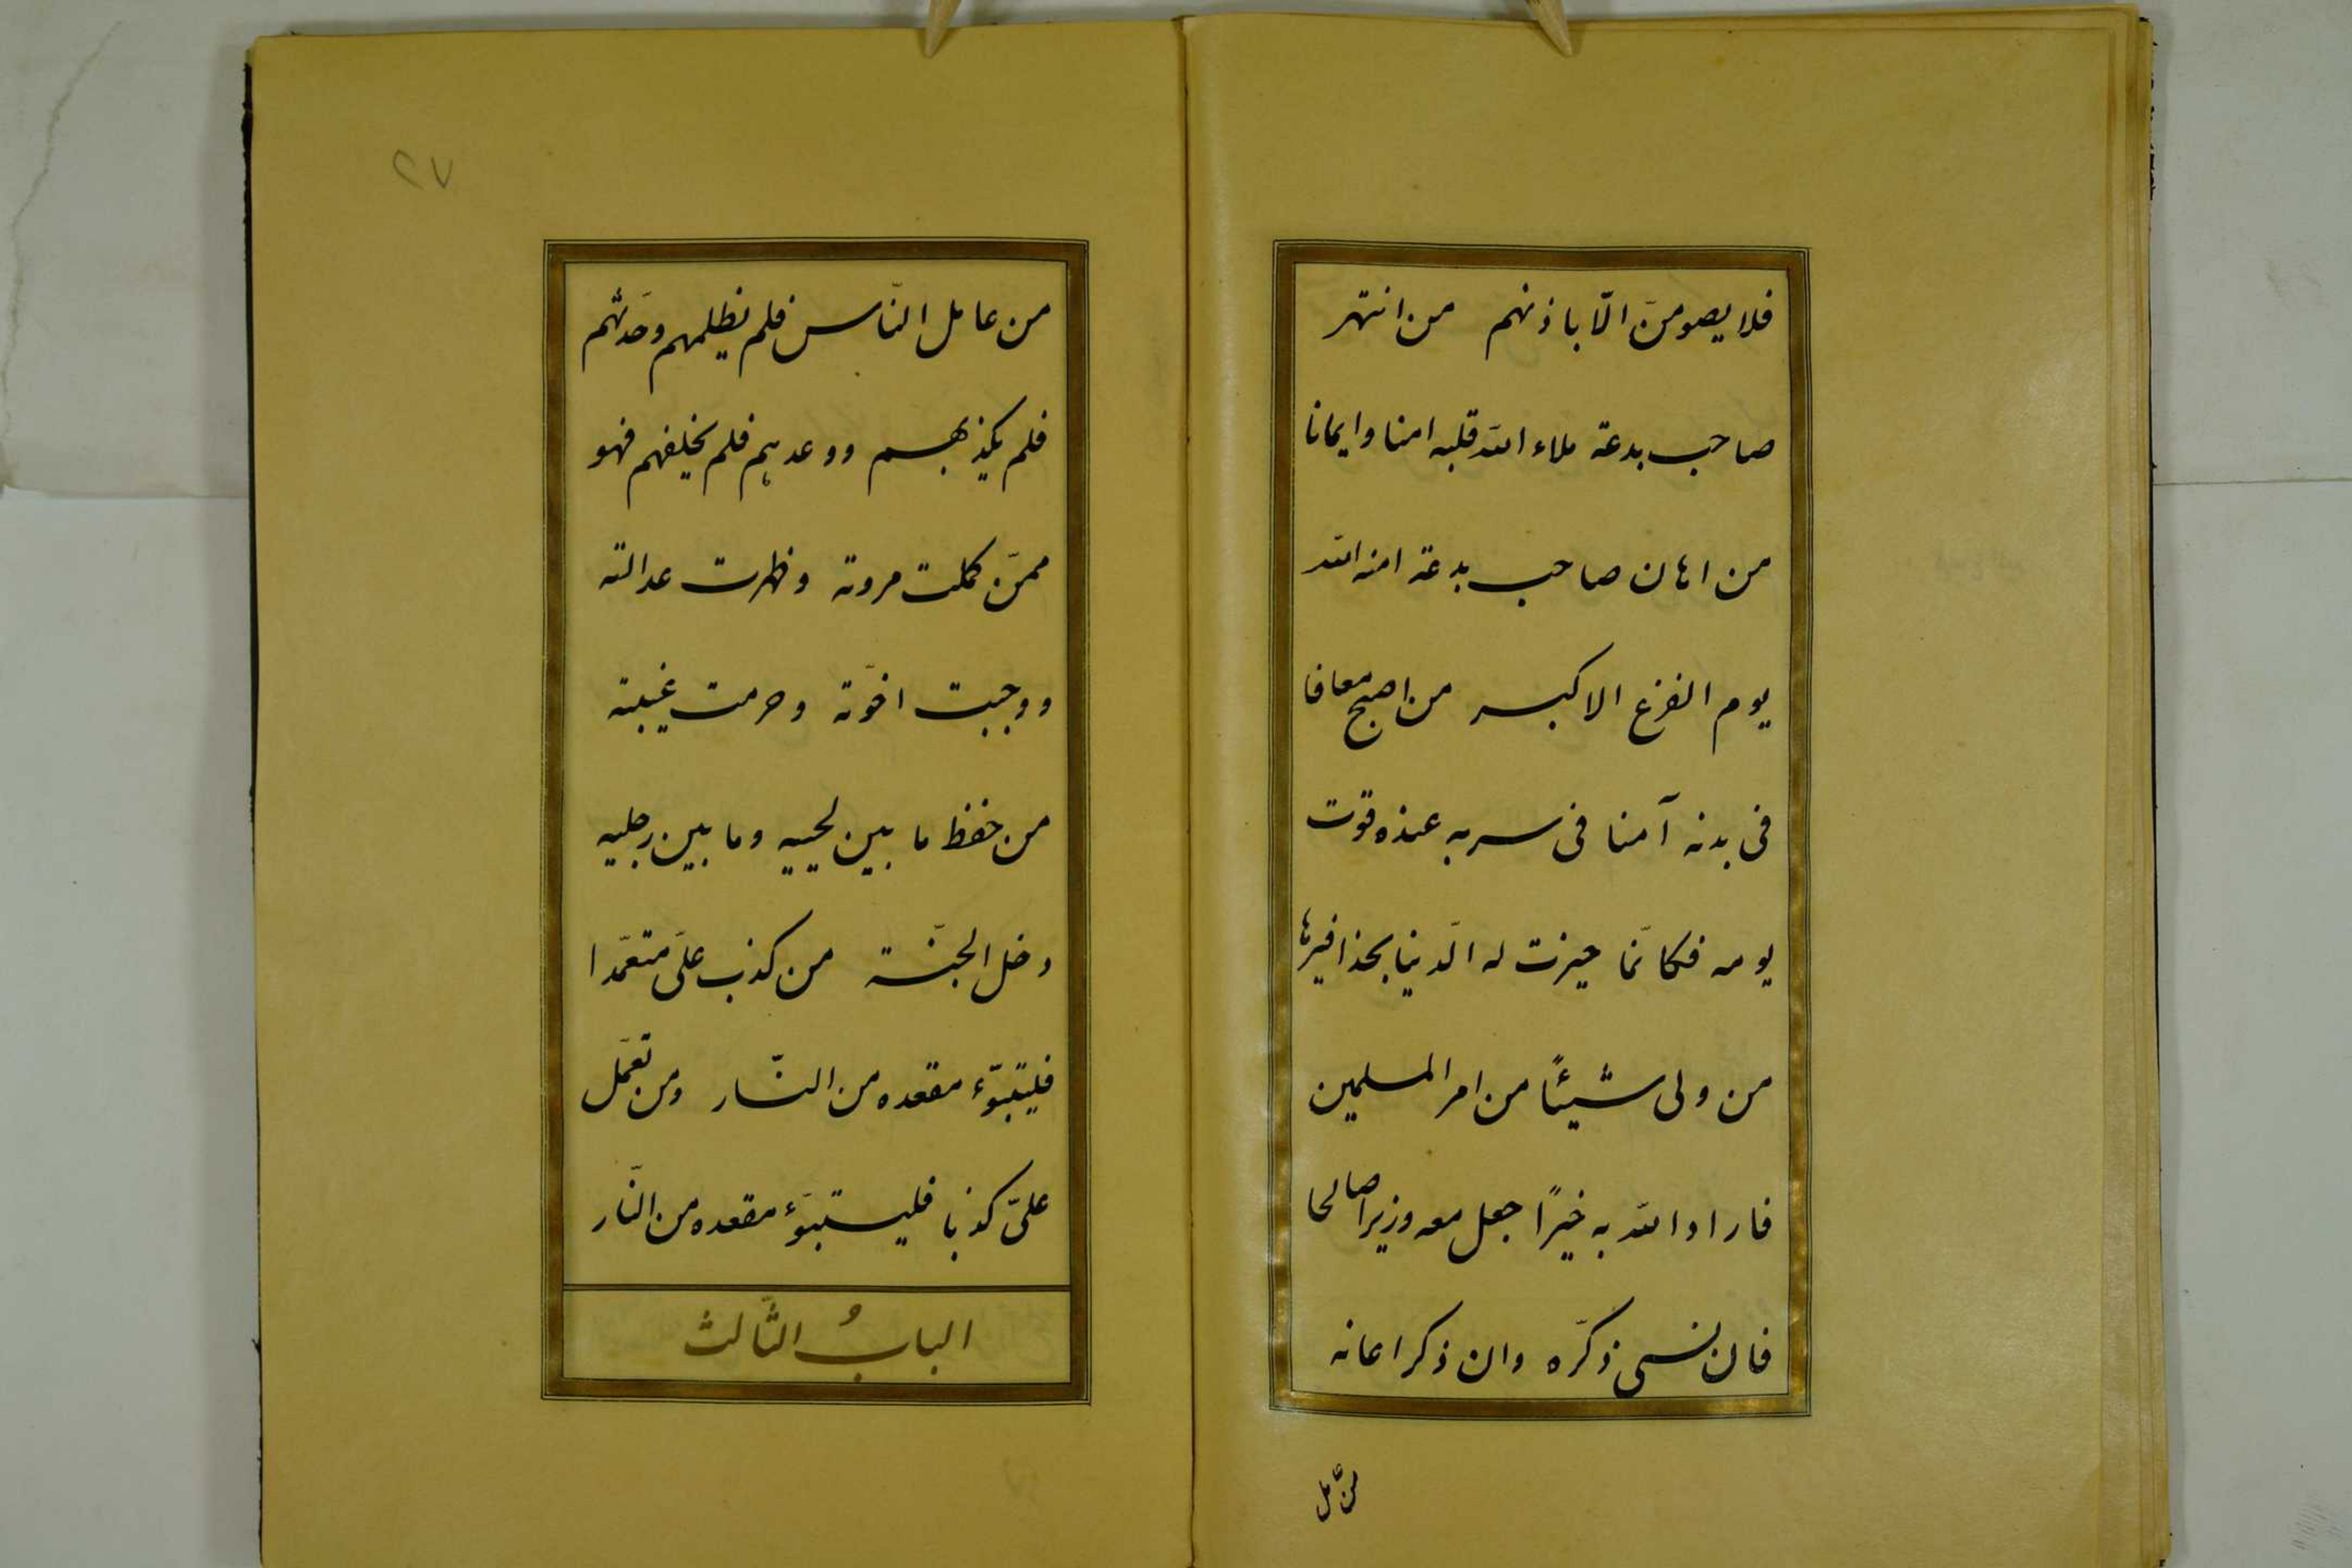 فلا يصومنّ الّا باذنهم من انتهر
صاحب بدعة ملاء الله قلبه امنا وايمانا
من اهان صاحب بدعة امنه الله
يوم الفزع الاكبر من اصبح معافا
فى بدنه آمنا فى سربه عنده قوت
يومه فكانّما حيزت له الّدنيا بحذافيرها
من ولى شيئًا من امر المسلمين
فاراد الله به خيرًا جعل معه وزيرا صالحا
فان نسى ذكّره وان ذكر اعانه
من عامل
٢٧
من عامل النّاس فلم يظلمهم وحّدثهم
فلم يكذبهم ووعدهم فلم يخلفهم فهو
ممّن كملت مروته وظهرت عدالته
ووجبت اخوّته وحرمت غيبته
من حفظ ما بين لحييه وما بين رجليه
دخل الجنّة من كذب علىّ متعمّدا
فليتبوّء مقعده من النّار ومن تعمّل
علىّ كذبا فليتبوّء مقعده من النّار
البابُ الثّالث